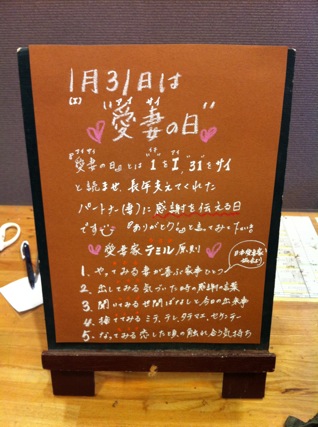 1月31日は
"愛妻の日"
アイ サイ
『愛妻の日』とは 1をI、31をサイ
と読ませ、長年支えてくれた
パートナー(妻)に感謝を伝える日
です 『ありがとう』と言ってみて下さい
愛妻家テミル原則
日本愛妻家協会より
1、やってみる 妻が喜ぶ家事ひとつ
2、出してみる 気づいた時の感謝の言葉
3、聞いてみる 世間ばなしと今日の出来事
4、捨ててみる ミエ、テレ、タテマエ、セケンテー
5、なってみる 恋した頃の触れ合う気持ち